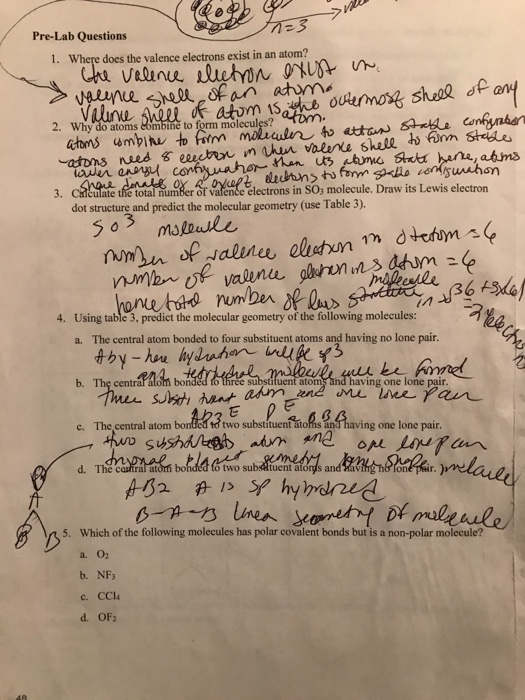 n=3
Pre-Lab Questions
1. Where does the valence electrons exist in an atom?
the valence electron exist in
valence shell of an atom.
Valence shell of atom is the outermost shell of any
atom.
2. Why do atoms combine to form molecules?
atoms combine to form molecules to attain stable configuration
atoms need 8 electron in their valence shell to form stable
lower energy configuration than its atomic state hence, atoms
share donate or accept electrons to form stable configuration
3. Calculate the total number of valence electrons in SO3 molecule. Draw its Lewis electron
dot structure and predict the molecular geometry (use Table 3).
SO3 molecule
number of valence electron in O atom = 6
number of valence electron in S atom = 6
hence total number of in
molecule
4. Using table 3, predict the molecular geometry of the following molecules:
a. The central atom bonded to four substituent atoms and having no lone pair.
hydration will be sp3
and tetrahedral molecule will be formed
b. The central atom bonded to three substituent atoms and having one lone pair.
three atom and one lone pair
AB3E
c. The central atom bonded to two substituent atoms and having one lone pair.
two atom and one lone pair
geometry
d. The central atom bonded to two substituent atoms and having no lone pair.
AB2 A is sp hybridized
B-A-B linear geometry of molecule
B
A
B B
5. Which of the following molecules has polar covalent bonds but is a non-polar molecule?
a. O2
b. NF3
c. CCl4
d. OF2
48